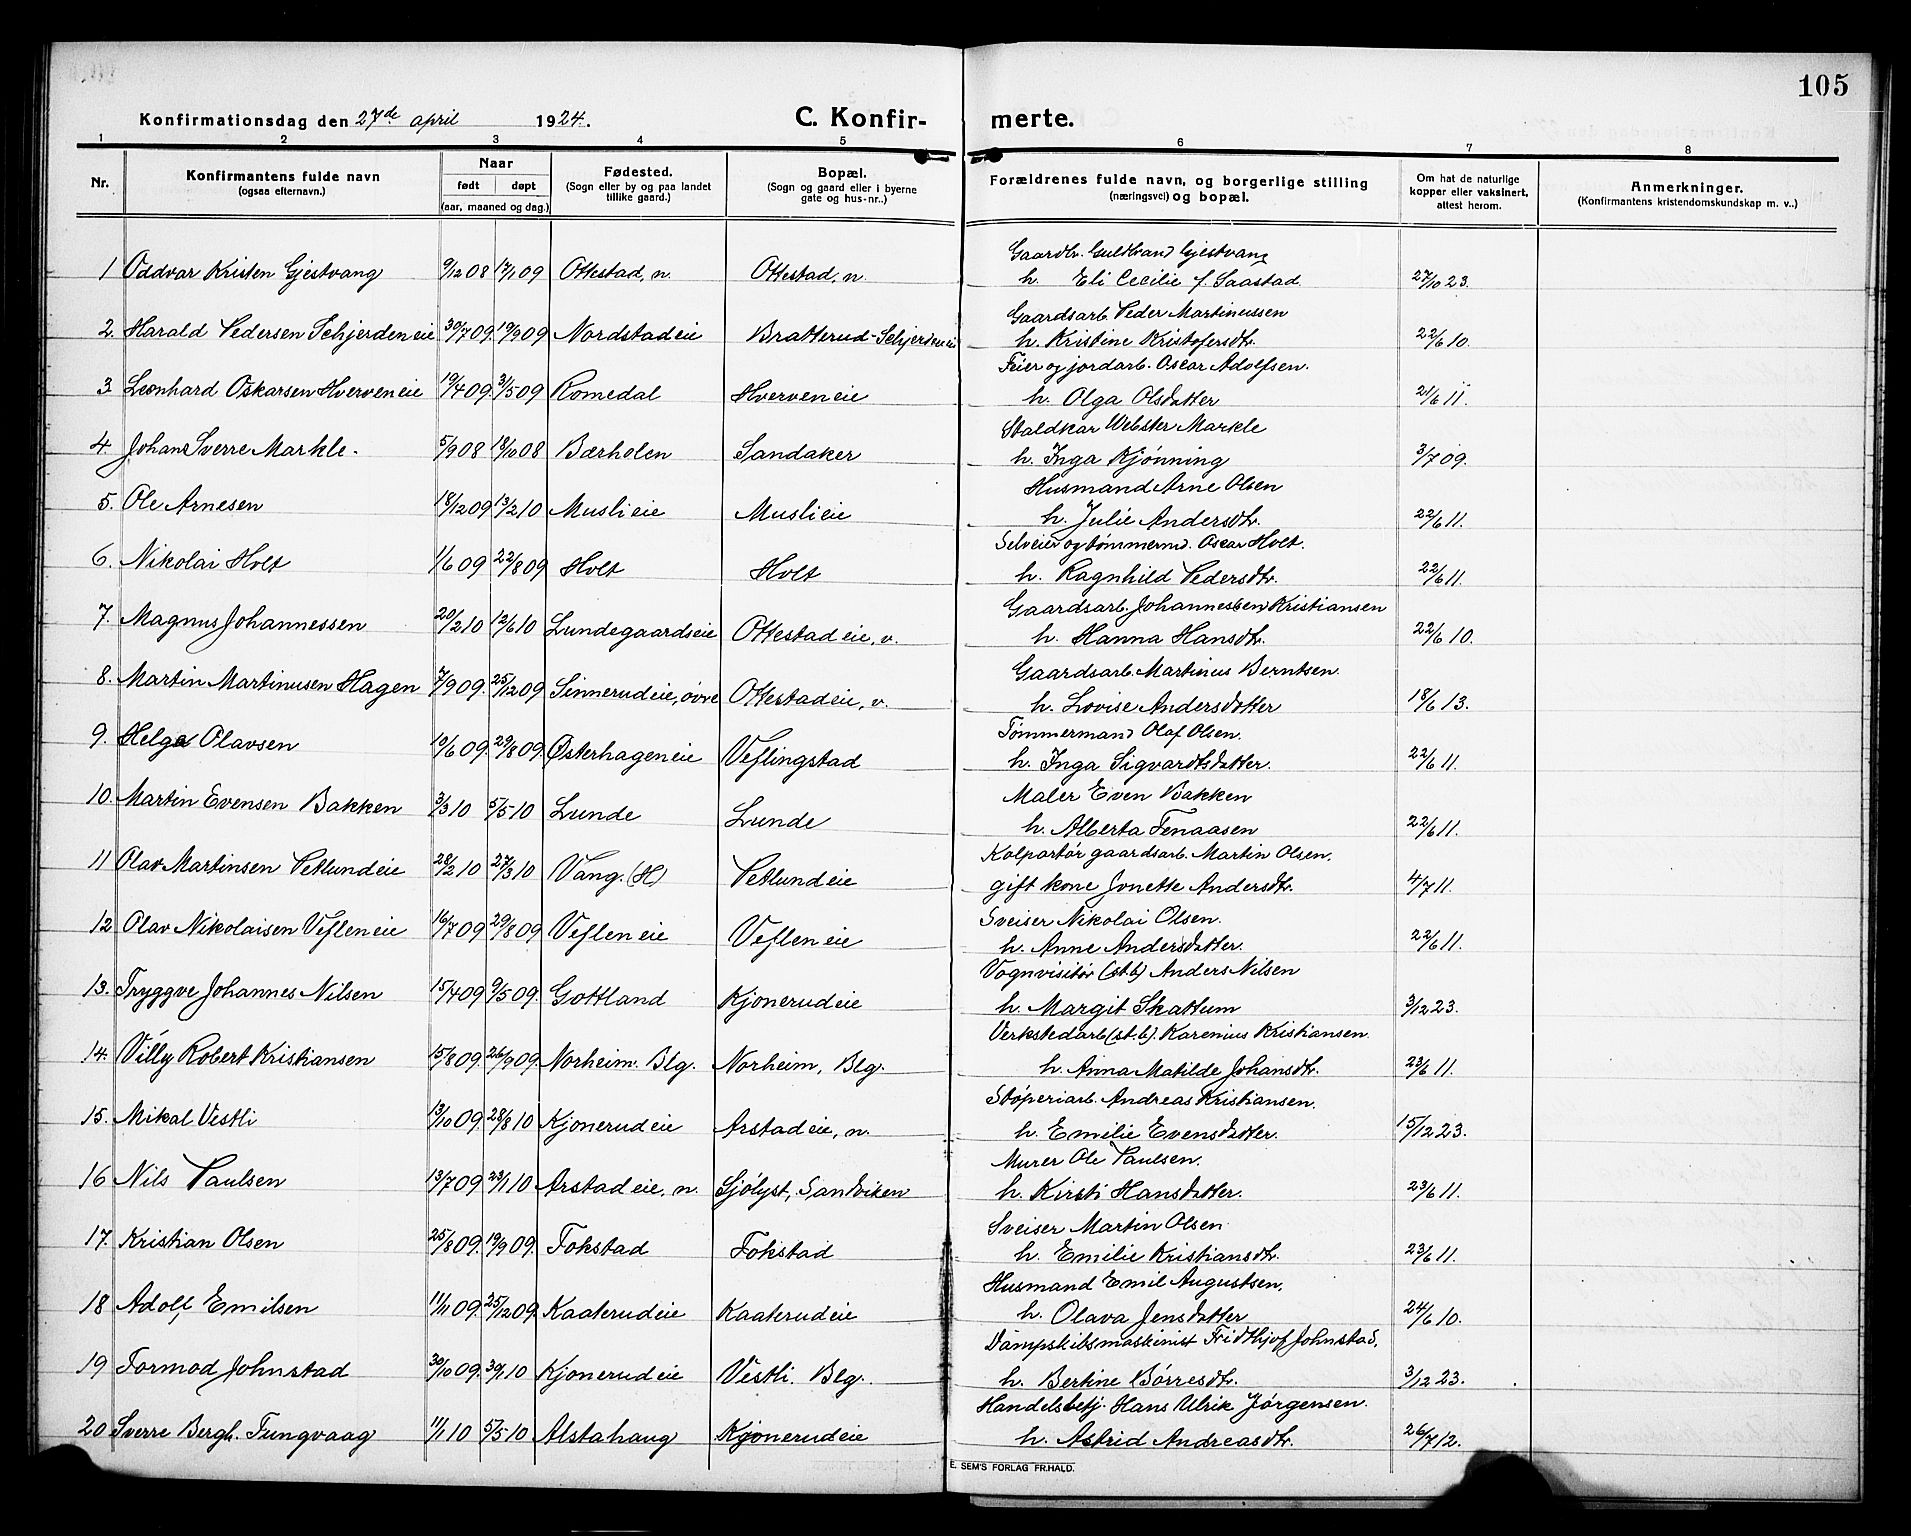 105
Konfirmationsdag den 27de april 1924.
C. Konfir- merte.
1 2 3 4 5 6 7 8
Nr.
Konfirmantens fulde navn
(ogsaa efternavn.)
Naar
født døpt
(aar, maaned og dag.)
Fødested.
(Sogn eller by og paa landet
tillike gaard.)
Bopæl.
(Sogn og gaard eller i byerne
gate og hus-nr..)
Forældrenes fulde navn, og borgerlige stilling
(næringsvei) og bopæl.
Om hat de naturlige
kopper eller vaksinert,
attest herom.
Anmerkninger.
(Konfirmantens kristendomskundskap m. v..)
Gaardbr. Guldbrand Gjestvang
1 Oddvar Kristen Gjestvang 9/12 08 17/1 09 Ottestad, n. Ottestad, n. h. Eli Cecilie f. Saastad. 27/10 23.
Gaardsarb. Peder Martinussen
2. Harald Pedersen Schjerdeneie 30/7 09. 19/9 09 Nordstadeie Bratterud-Schjerdeneie h. Kristine Kristofersdtr. 22/6 10.
Feier og jordarb. Oscar Adolfsen.
3 Leonhard Oskarsen Hverveneie 19/4 09. 31/5 09 Romedal Hverveneie h. Olga Olsdatter 21/6 11.
Staldkar Webster Markle
4 Johan Sverre Markle. 5/9 08 18/10 08 Bærholen Sandaker h. Inga Kjønning 3/7 09.
Husmand Arne Olsen
5. Ole Arnesen 18/12 09 13/2 10 Muslieie Muslieie h. Julie Andersdtr. 22/6 11.
Selveier og tømmermd. Oscar Holt.
6. Nikolai Holt 1/6 09 22/8 09 Holt Holt h. Ragnhild Pedersdtr. 22/6 11.
Gaardsarb. Johannes Kristiansen
7. Magnus Johannessen 20/2 10 12/6 10 Lundegaardseie Ottestadeie, v. h. Hanna Hansdtr. 22/6 10.
Gaardsarb. Martinus Berntsen.
8. Martin Martinusen Hagen 7/9 09. 25/12 09 Sinnerudeie, øvre Ottestadeie, v. h. Lovise Andersdatter 18/6 13.
Tømmermand Olaf Olsen.
9. Helge Olavsen 10/6 09. 29/8 09. Østerhageneie Veflingstad h. Inga Sigvardtsdatter. 22/6 11.
Maler Even Bakken
10. Martin Evensen Bakken 3/3 10 5/5 10 Lunde Lunde h. Alberta Fenaasen 22/6 11.
Kolportør gaardsarb. Martin Olsen.
11 Olav Martinsen Vetlundeie 28/2 10 27/3 10 Vang. (H) Vetlundeie gift kone Jonette Andersdtr. 4/7 11.
Sveiser Nikolai Olsen.
12 Olav Nikolaisen Vefleneie 16/7 09 29/8 09 Vefleneie Vefleneie h. Anne Andersdatter. 22/6 11.
Vognvisitør (st.b) Anders Nilsen
13. Tryggve Johannes Nilsen 15/4 09 9/5 09. Gottland Kjonerudeie h. Margit Skattum 3/12 23.
Verkstedarb (st.b). Karenius Kristiansen.
14. Villy Robert Kristiansen 15/8 09. 26/9 09. Norheim. Blg. Norheim, Blg. h. Anna Matilde Johansdtr. 23/6 11.
Støperiarb. Andreas Kristiansen.
15. Mikal Vestli 13/10 09. 28/8 10 Kjonerudeie Arstadeie, n. h. Emilie Evensdatter. 15/12 23.
Murer Ole Paulsen.
16 Nils Paulsen 13/7 09 23/1 10 Arstadeie, n. Sjølyst, Sandviken h. Kirsti Hansdatter. 23/6 11.
Sveiser Martin Olsen
17. Kristian Olsen 25/8 09. 19/9 09. Fokstad Fokstad h. Emilie Kristiansdtr. 23/6 11.
Husmand Emil Augustsen,
18 Adolf Emilsen 11/11 09 25/12 09. Kaaterudeie Kaaterudeie h. Olava Jensdatter 24/6 10.
Dampskibsmaskinist Fridthjof Johnstad.
19 Tormod Johnstad 30/10 09. 30/1 10 Kjonerudeie Vestli. Blg. h. Bertine Børresdtr. 3/12 23.
Handelsbetj. Hans Ulrik Jørgensen.
20 Sverre Bergh. Tungvaag 11/1 10 5/5 10 Alstahaug Kjonerudeie h. Astrid Andreasdtr. 26/7 12.
E. SEM'S FORLAG FR.HALD.